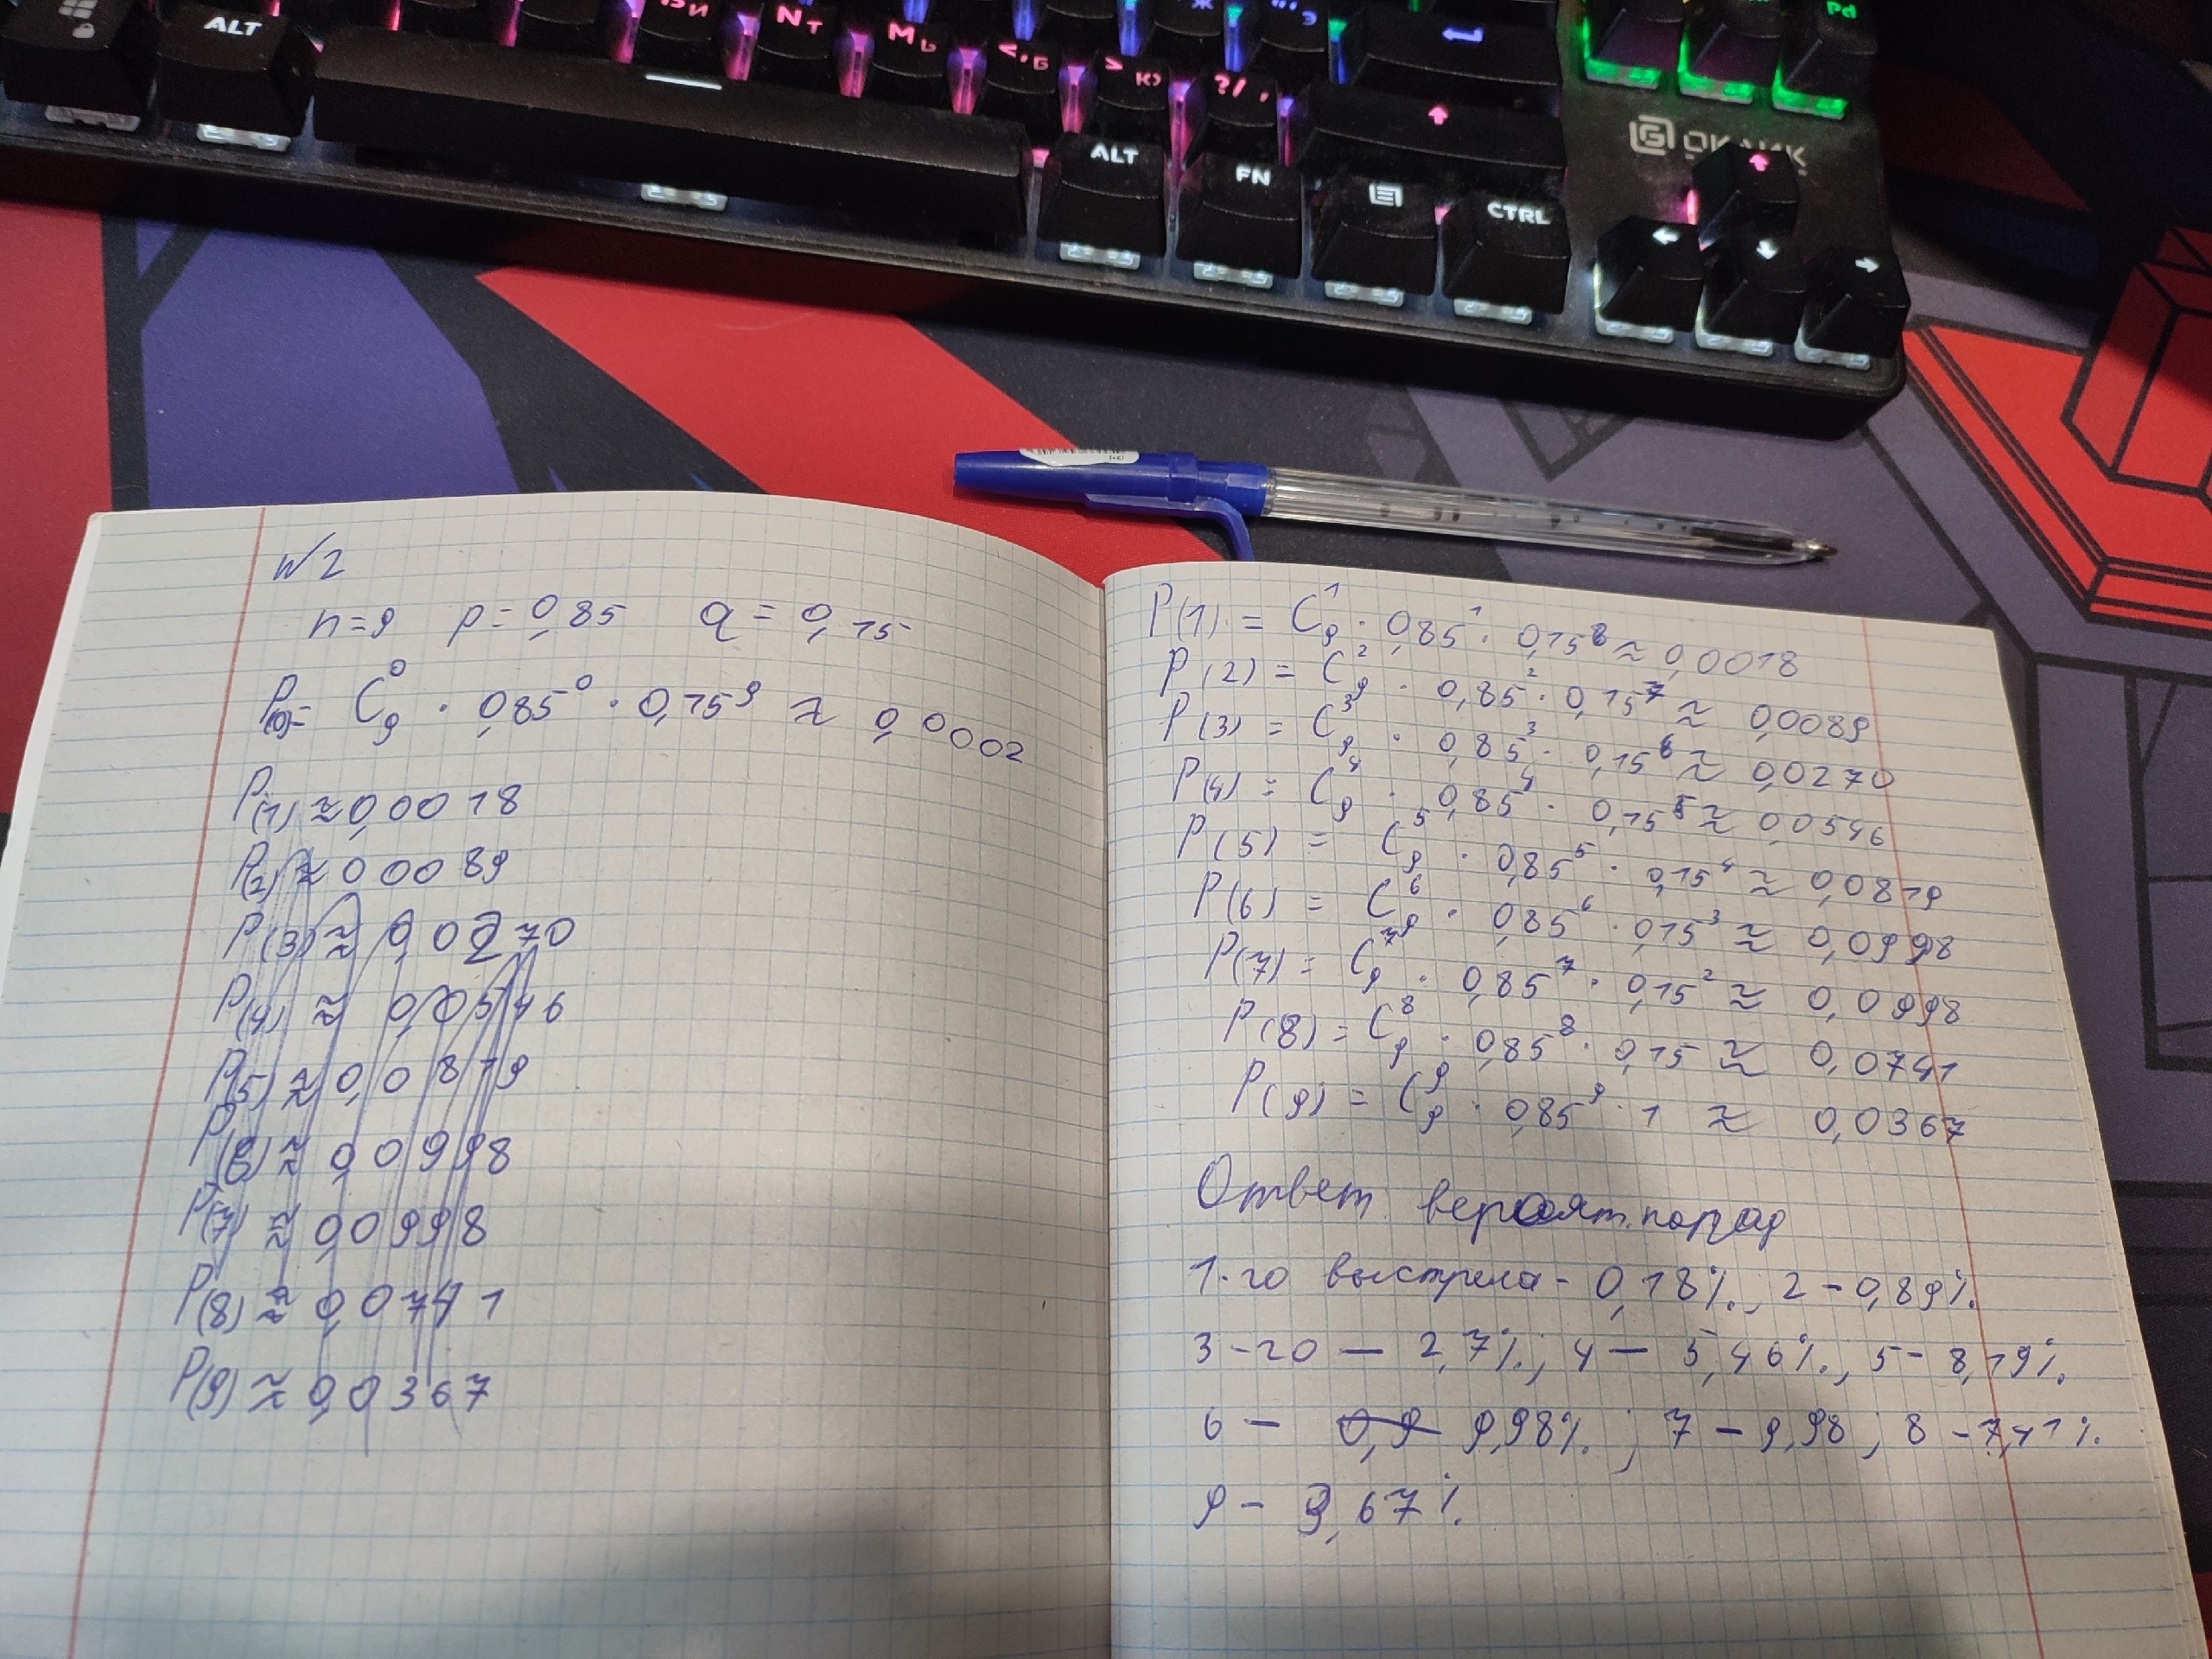 ALT
NT
МЬ
<, Б
> Ю
?/ ,
ALT
FN
CTRL
№2
n=9 p=0,85 q=0,15
P(0)= C₉⁰ · 0,85⁰ · 0,15⁹ ≈ 0,0002
P(1) ≈ 0,0018
P(2) ≈ 0,0089
P(3) ≈ 0,0270
P(4) ≈ 0,0546
P(5) ≈ 0,0819
P(6) ≈ 0,0998
P(7) ≈ 0,0998
P(8) ≈ 0,0741
P(9) ≈ 0,0367
P(1) = C₉¹ · 0,85¹ · 0,15⁸ ≈ 0,0018
P(2) = C₉² · 0,85² · 0,15⁷ ≈ 0,0089
P(3) = C₉³ · 0,85³ · 0,15⁶ ≈ 0,0270
P(4) = C₉⁴ · 0,85⁴ · 0,15⁵ ≈ 0,0546
P(5) = C₉⁵ · 0,85⁵ · 0,15⁴ ≈ 0,0819
P(6) = C₉⁶ · 0,85⁶ · 0,15³ ≈ 0,0998
P(7) = C₉⁷ · 0,85⁷ · 0,15² ≈ 0,0998
P(8) = C₉⁸ · 0,85⁸ · 0,15 ≈ 0,0741
P(9) = C₉⁹ · 0,85⁹ · 1 ≈ 0,0367
Ответ вероят. попад
1-го выстрела - 0,18%, 2 - 0,89%.
3-го — 2,7%; 4 — 5,46%; 5 - 8,19%.
6 — 0,9 9,98%; 7 - 9,98; 8 - 7,41%.
9 - 3,67%.